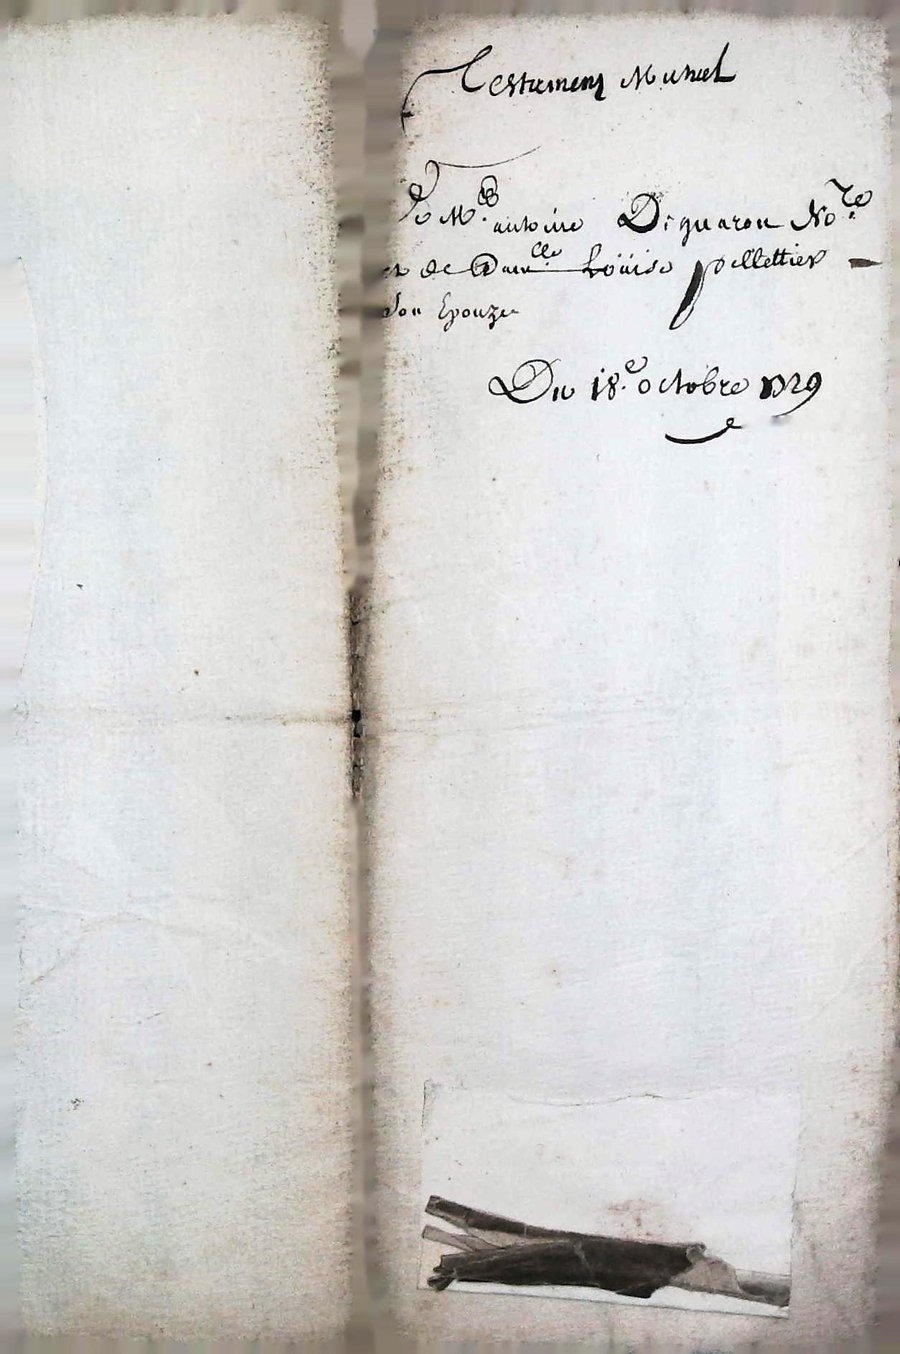 Testament Mutuel
de Me. antoine Dequaron Nore.
et de Damlle. Loüise pellettier
son Epouze
Du 18.e octobre 1729